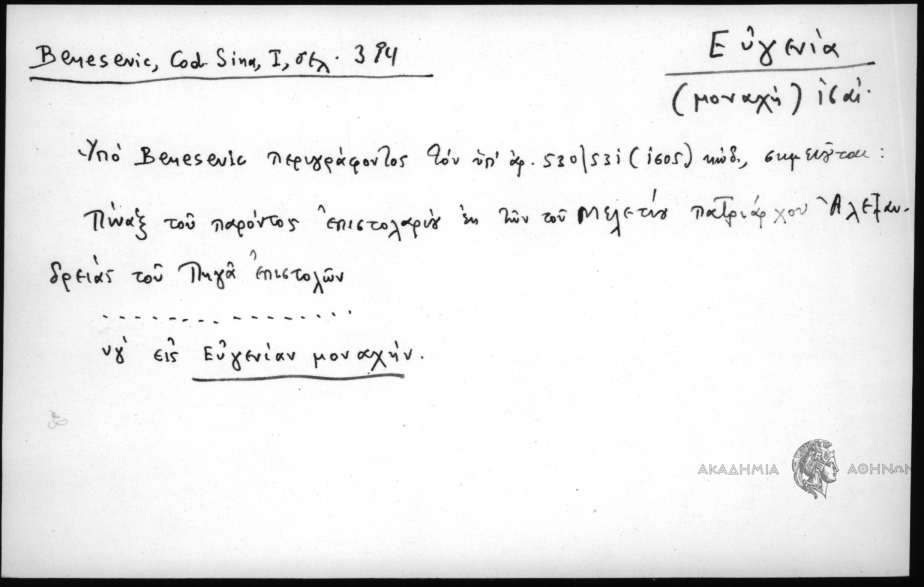 Benesevic, Cod. Sina, I, σελ. 394
Εὐγενία
(μοναχή) ις´ αἰ.
Ὑπό Benesevic περιγράφοντος τόν ὑπ' ἀρ. 530/531 (1605) κώδ., σημειοῦται:
Πίναξ τοῦ παρόντος ἐπιστολαρίου ἐκ τῶν τοῦ Μελετίου πατριάρχου Ἀλεξαν-
δρείας τοῦ Πηγᾶ ἐπιστολῶν
. . . . . . . . . . . . . . . .
νγ' εἰς Εὐγενίαν μοναχήν.
ΑΚΑΔΗΜΙΑ ΑΘΗΝΩΝ